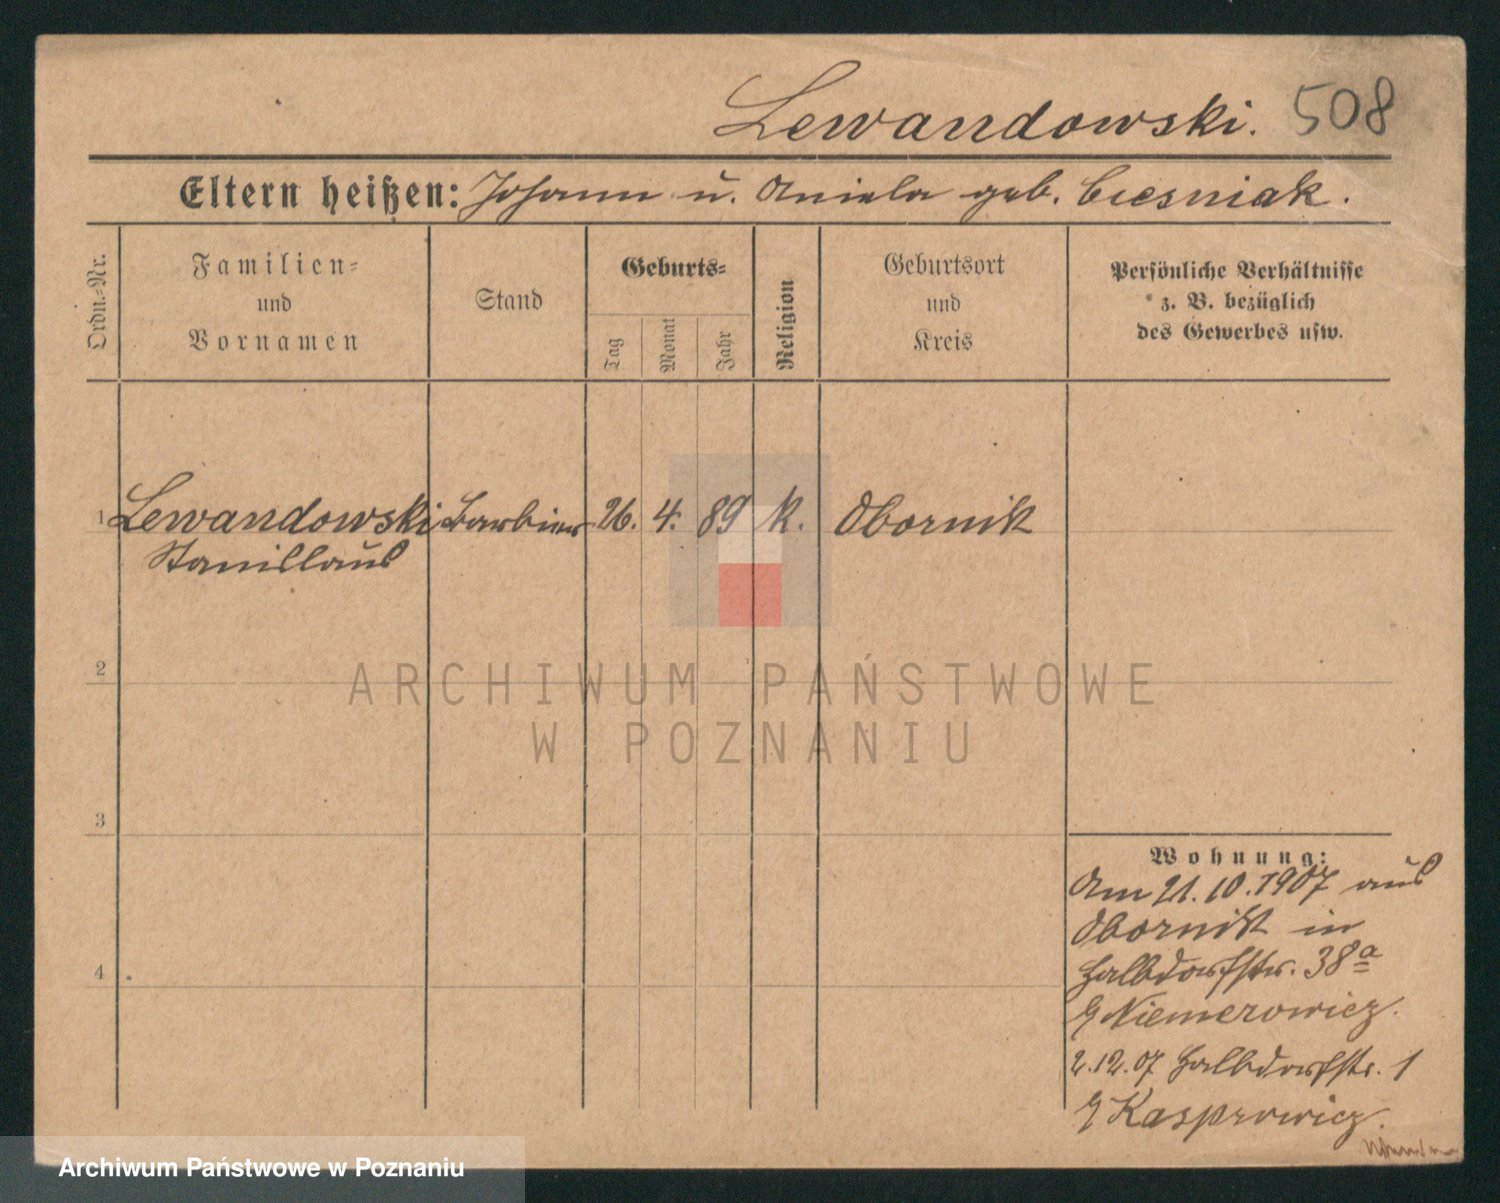 Lewandowski. 508
Eltern heißen: Johann u. Aniela geb. Ciesniak.
Ordn.-Nr.
Familien-
und
Vornamen
Stand
Geburts-
Tag
Monat
Jahr
Religion
Geburtsort
und
Kreis
Persönliche Verhältnisse
z. B. bezüglich
des Gewerbes usw.
1 Lewandowski Barbier 26. 4. 89 k. Obornik
Stanislaus
2
ARCHIWUM PAŃSTWOWE
W POZNANIU
3
Wohnung:
Am 21.10.1907 aus
Obornik in
Halbdorfstr. 38a
Niemerowicz.
4
2.12.07 Halbdorfstr. 1
Kasprowicz.
Archiwum Państwowe w Poznaniu